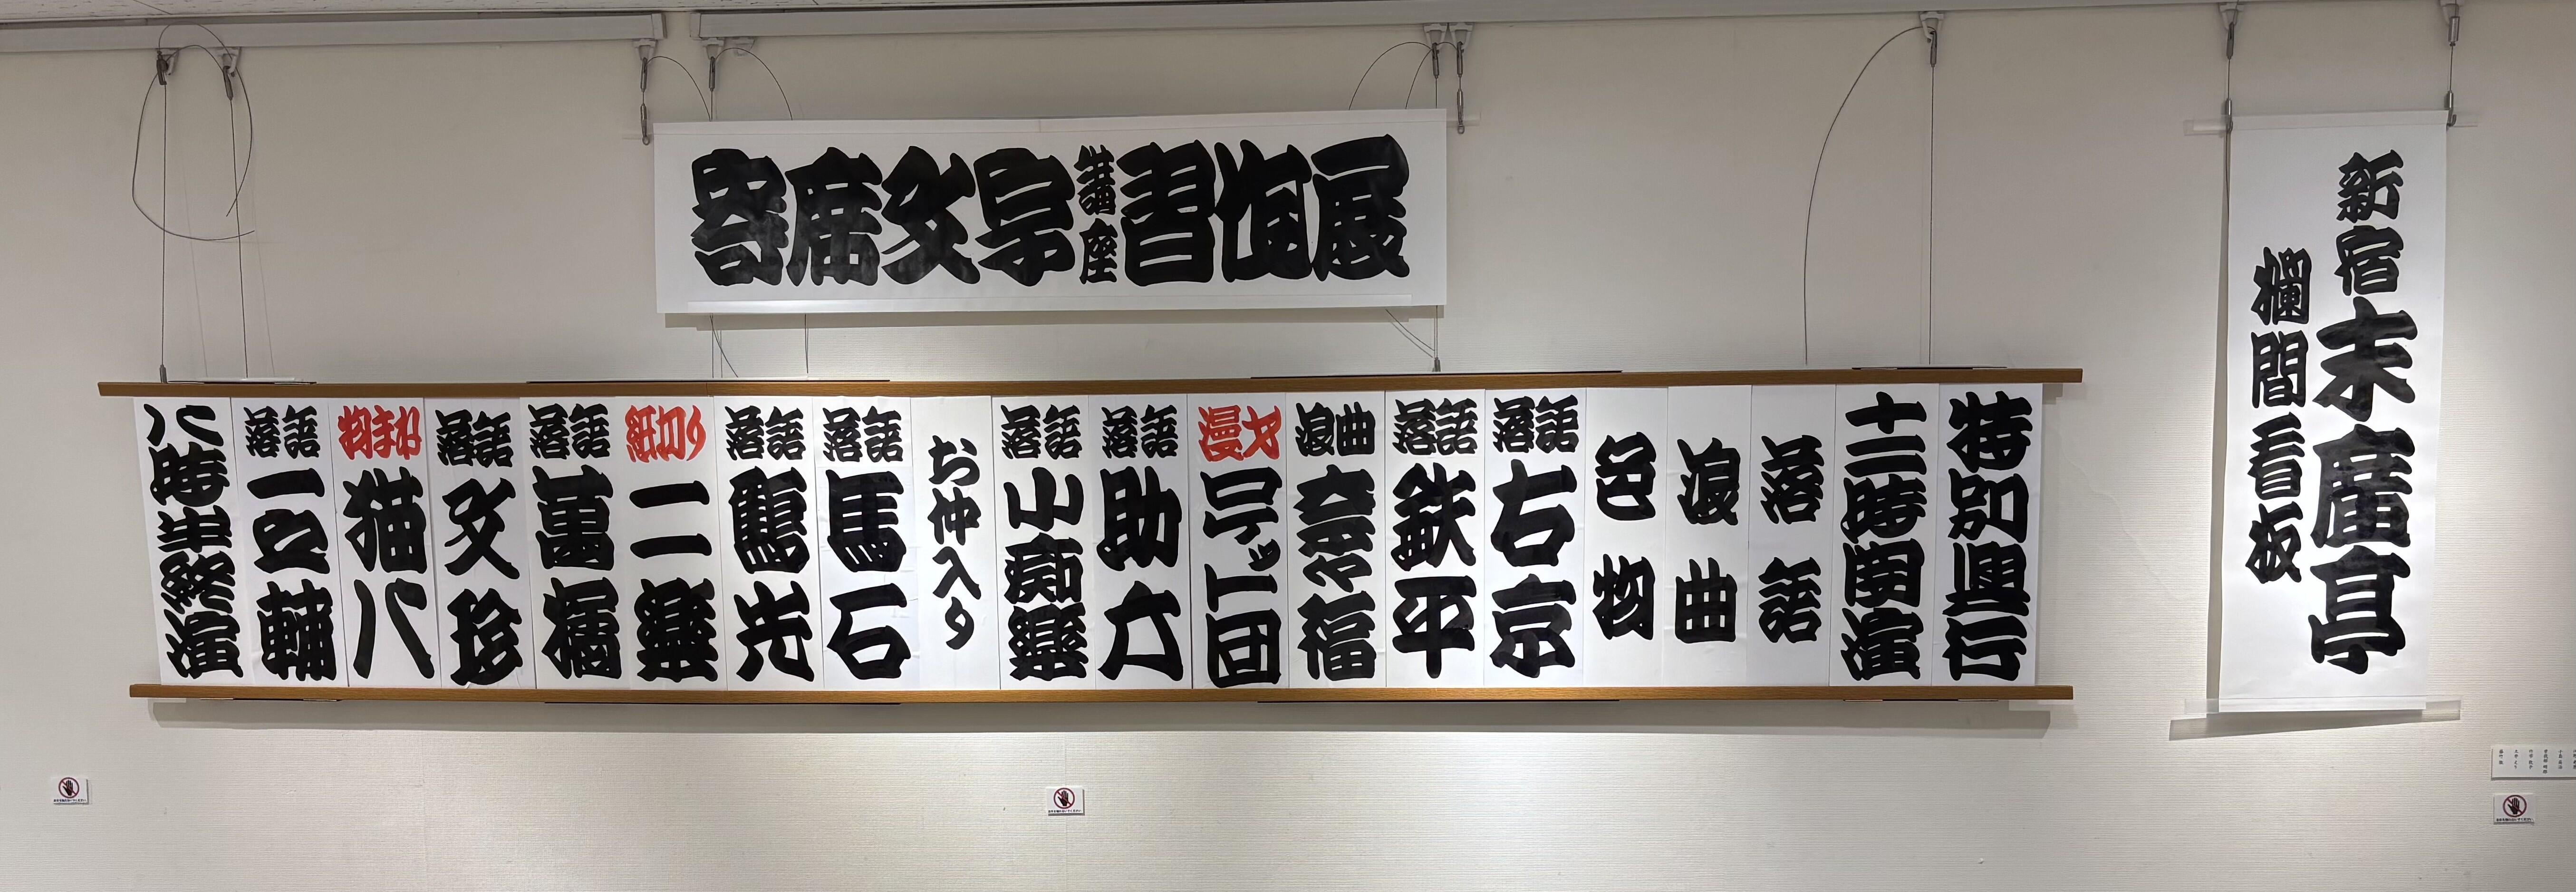 寄席文字講座習作展
新宿末廣亭
欄間看板
特別興行
十二時開演
落語
浪曲
色物
落語
右京
落語
鉄平
浪曲
奈々福
漫才
ロケット団
落語
助六
落語
小痴樂
お仲入り
落語
馬石
落語
鶴光
紙切り
二樂
落語
萬橘
落語
文珍
物まね
猫八
落語
一之輔
八時半終演